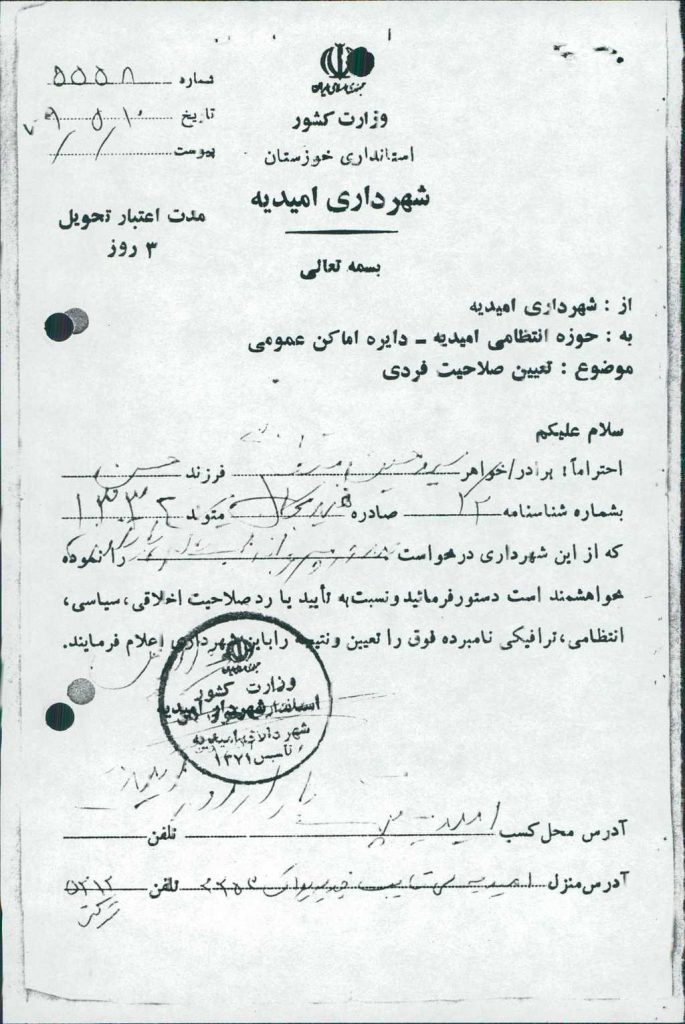 جمهوری اسلامی ایران
وزارت کشور
استانداری خوزستان
شهرداری امیدیه
شماره ۵۵۵۸
تاریخ ۱۰ ۵ ۷۹
پیوست
مدت اعتبار تحویل
۳ روز
بسمه تعالی
از : شهرداری امیدیه
به : حوزه انتظامی امیدیه – دایره اماکن عمومی
موضوع : تعیین صلاحیت فردی
سلام علیکم
احتراماً : برادر/خواهر فرزند حسن
بشماره شناسنامه ۲۲ صادره متولد ۱۳۳۴
که از این شهرداری درخواست را نموده
خواهشمند است دستور فرمائید و نسبت به تأیید یا رد صلاحیت اخلاقی، سیاسی،
انتظامی، ترافیکی نامبرده فوق را تعیین و نتیجه را باین شهرداری اعلام فرمایند.
شهردار امیدیه
وزارت کشور
شهرداری امیدیه
تاسیس ۱۳۷۱
آدرس محل کسب امیدیه تلفن
آدرس منزل امیدیه تلفن ۵۲۱۲
شرکت